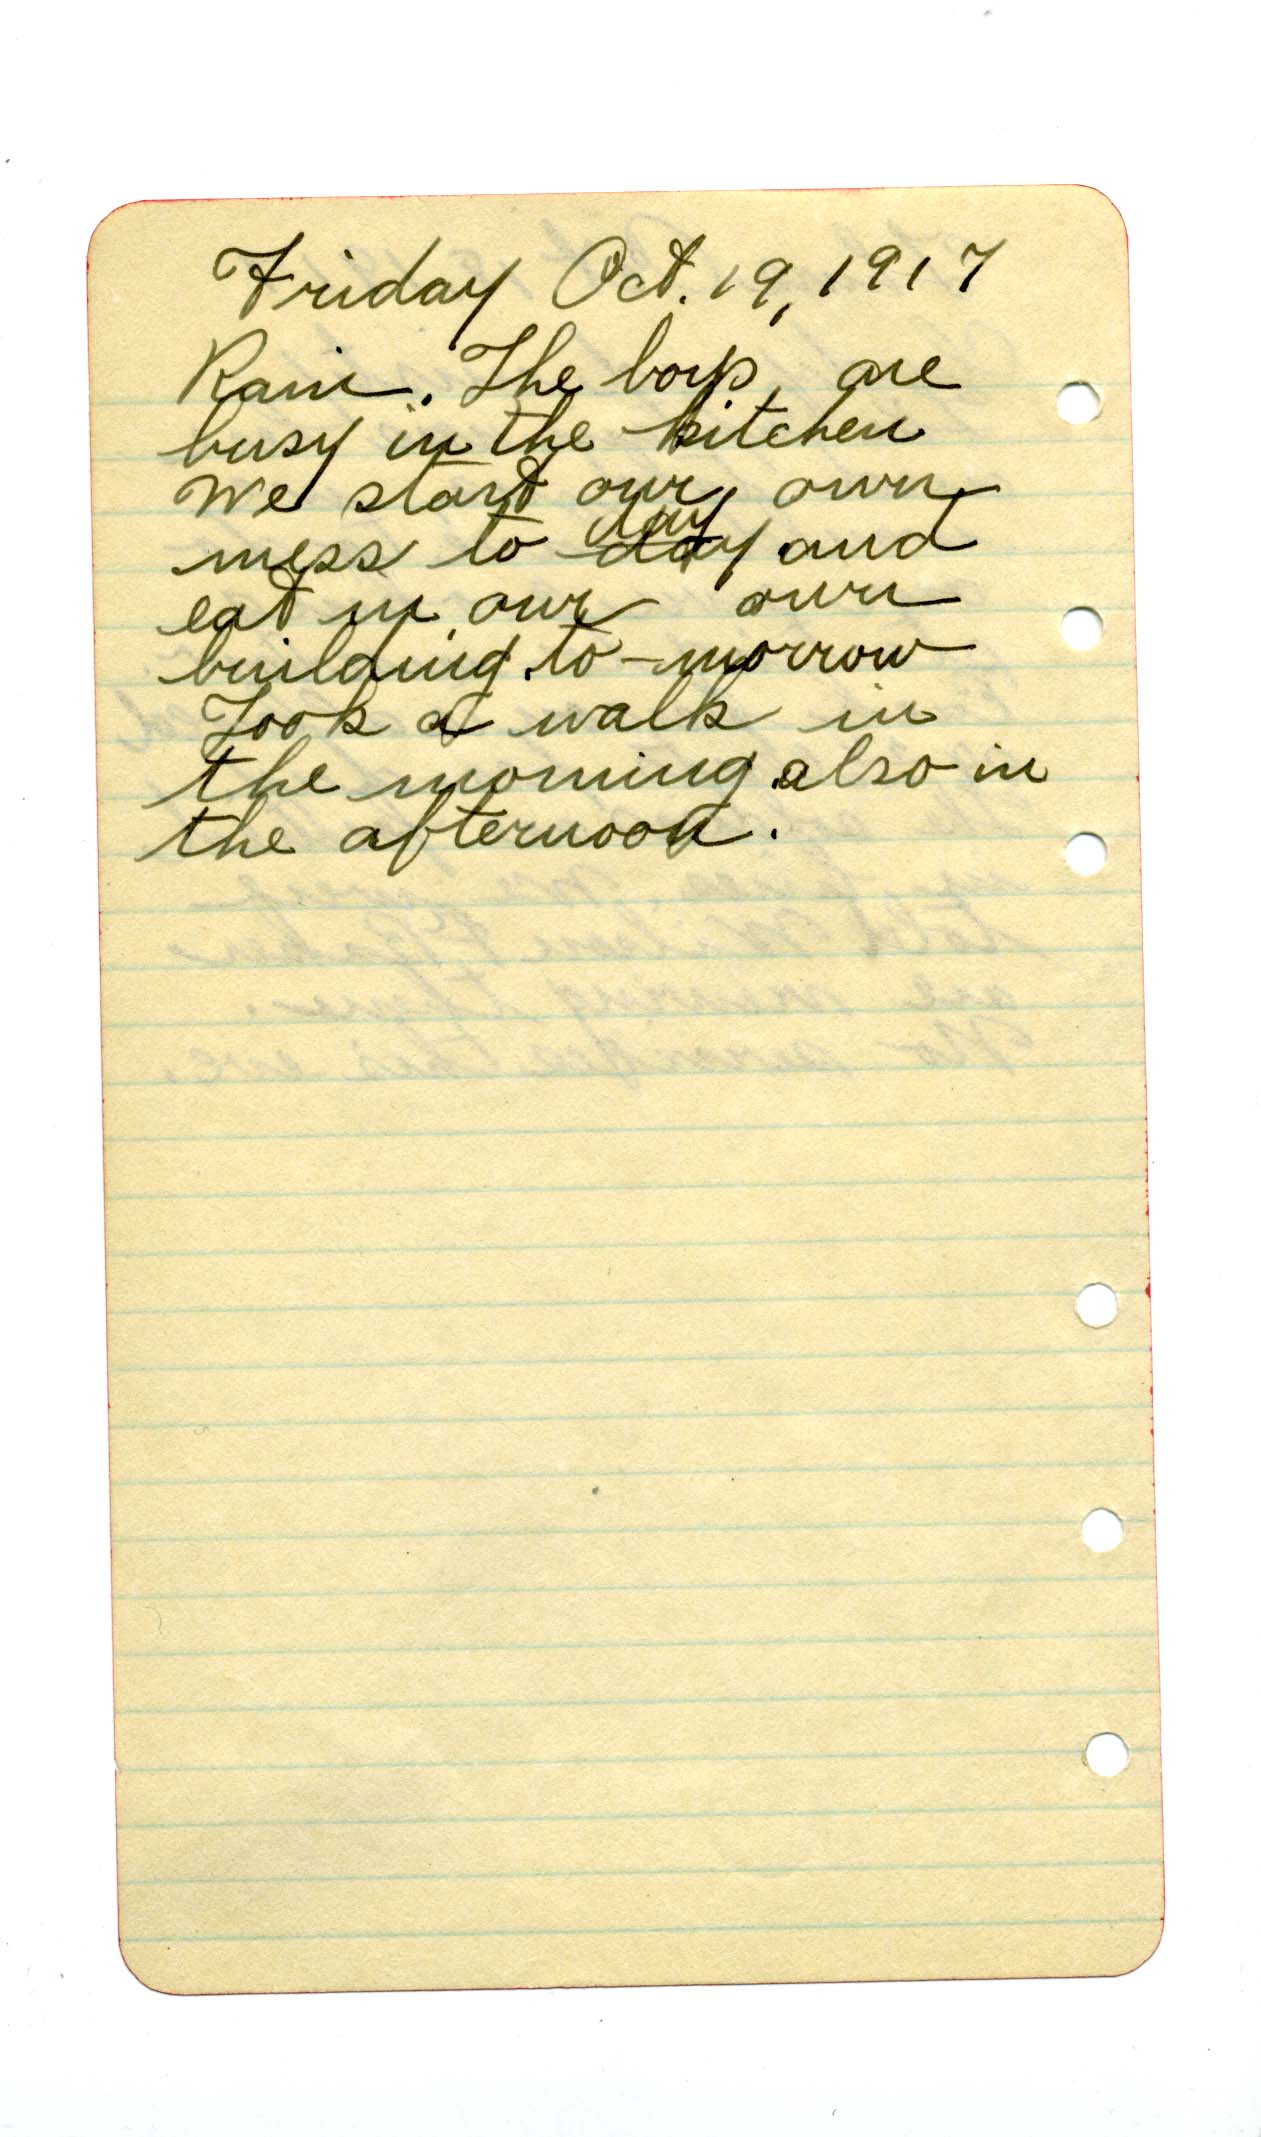 Friday Oct. 19, 1917
Rain. The boys are
busy in the kitchen
We start our own
mess to day day and
eat in our own
building to-morrow
Took a walk in
the morning also in
the afternoon.